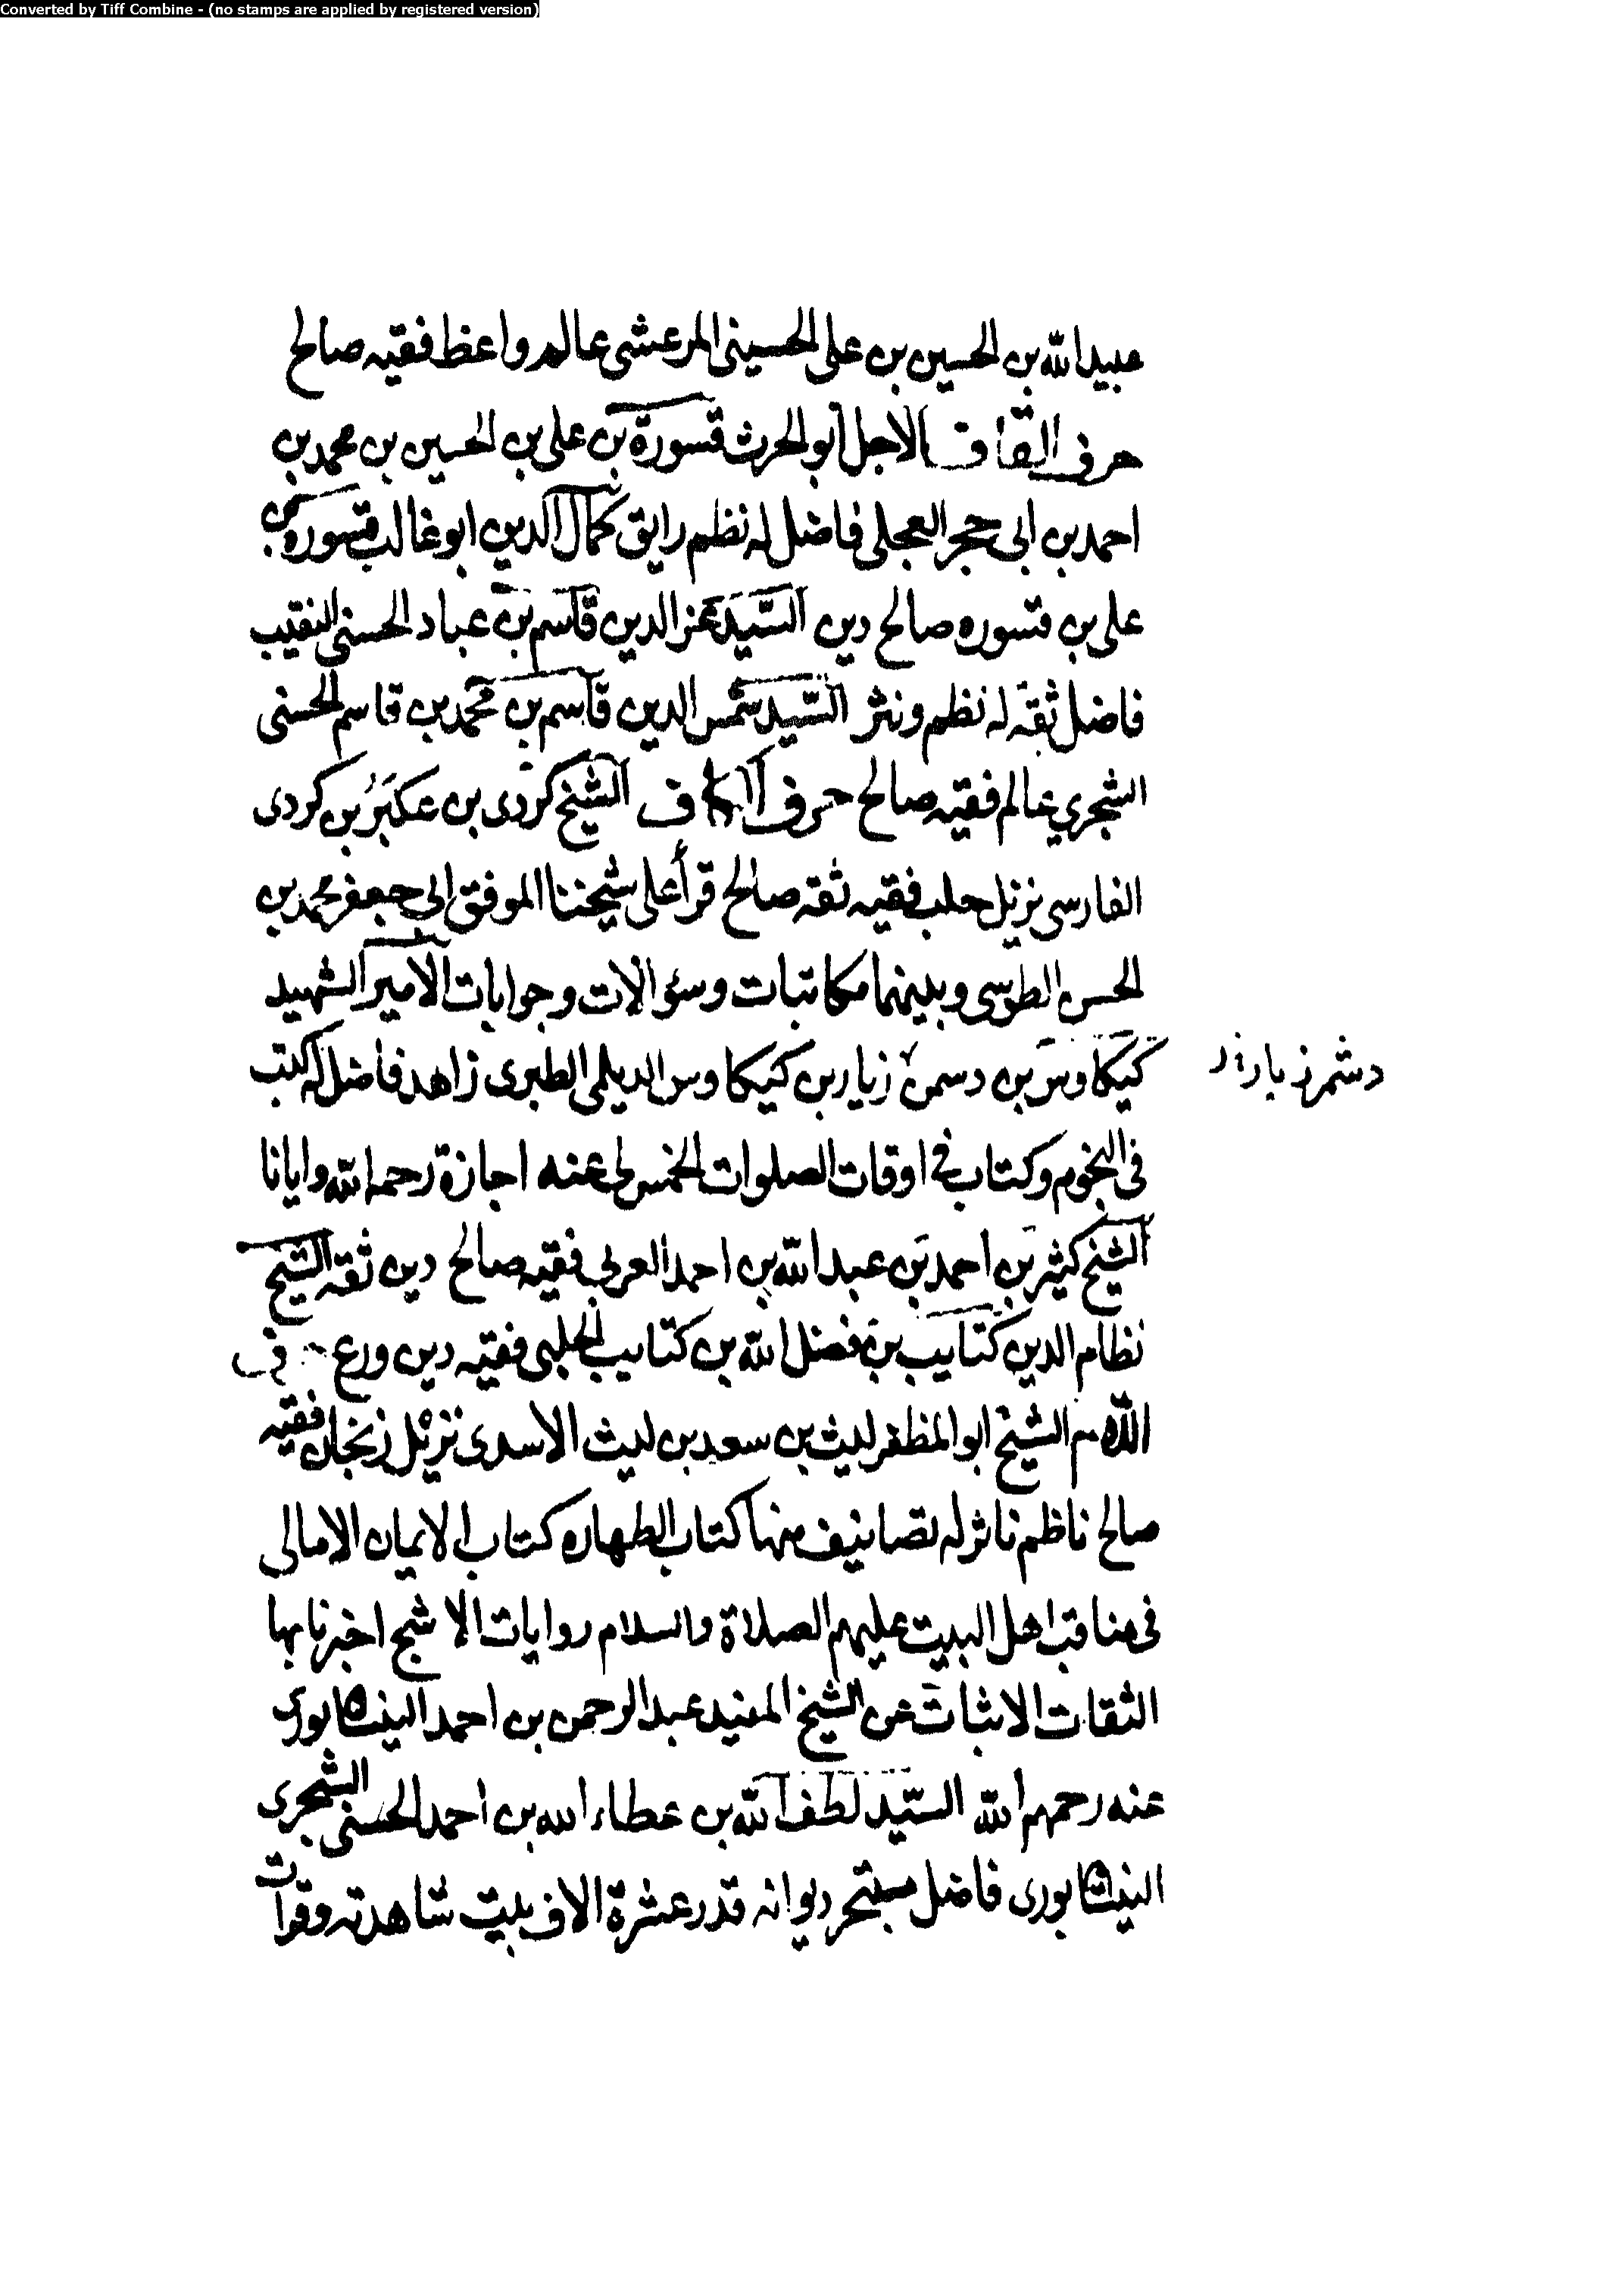 Converted by Tiff Combine - (no stamps are applied by registered version)
عبيد الله بن الحسين بن على الحسينى المرعشى عالم واعظ فقيه صالح
حرف القاف الاجل ابو الحرث قسورة بن على بن الحسين بن محمد بن
احمد بن ابى حجر العجلى فاضل له نظم رايق كمال الدين ابو غالب قسوره بن
على بن قسوره صالح دين السيد عز الدين قاسم بن عباد الحسنى النقيب
فاضل ثقه له نظم ونثر السيد شمس الدين قاسم بن محمد بن قاسم الحسنى
الشجري عالم فقيه صالح حرف الكاف الشيخ كردى بن عكبر بن كردى
الفارسى نزيل حلب فقيه ثقه صالح قرأ على شيخنا الموفق ابى جعفر محمد بن
الحسن الطوسى وبينهما مكاتبات وسؤالات وجوابات الامير الشهيد
كيكاوس بن دسمن زيار بن كيكاوس الديلمى الطبرى زاهد فاضل له كتب
دشمرز يار
فى النجوم وكتاب فى اوقات الصلوات الخمس لى عنه اجازة رحمه الله وايانا
الشيخ كثير بن احمد بن عبد الله بن احمد العربى فقيه صالح دين ثقه الشيخ
نظام الدين كتايب بن فضل الله بن كتايب الحلبى فقيه دين ورع
اللام الشيخ ابو المظفر ليث بن سعد بن ليث الاسدى نزيل زنجان فقيه
صالح ناظم ناثر له تصانيف منها كتاب الطهاره كتاب الايمان الامالى
فى مناقب اهل البيت عليهم الصلاة والسلام روايات الاشج اخبرنا بها
الثقات الاثبات عن الشيخ المفيد عبد الرحمن بن احمد النيشابورى
عنه رحمهم الله السيد لطف الله بن عطاء الله بن احمد الحسنى الشجرى
النيشابورى فاضل متبحر ديوانه قدر عشرة الاف بيت شاهدته وقرات